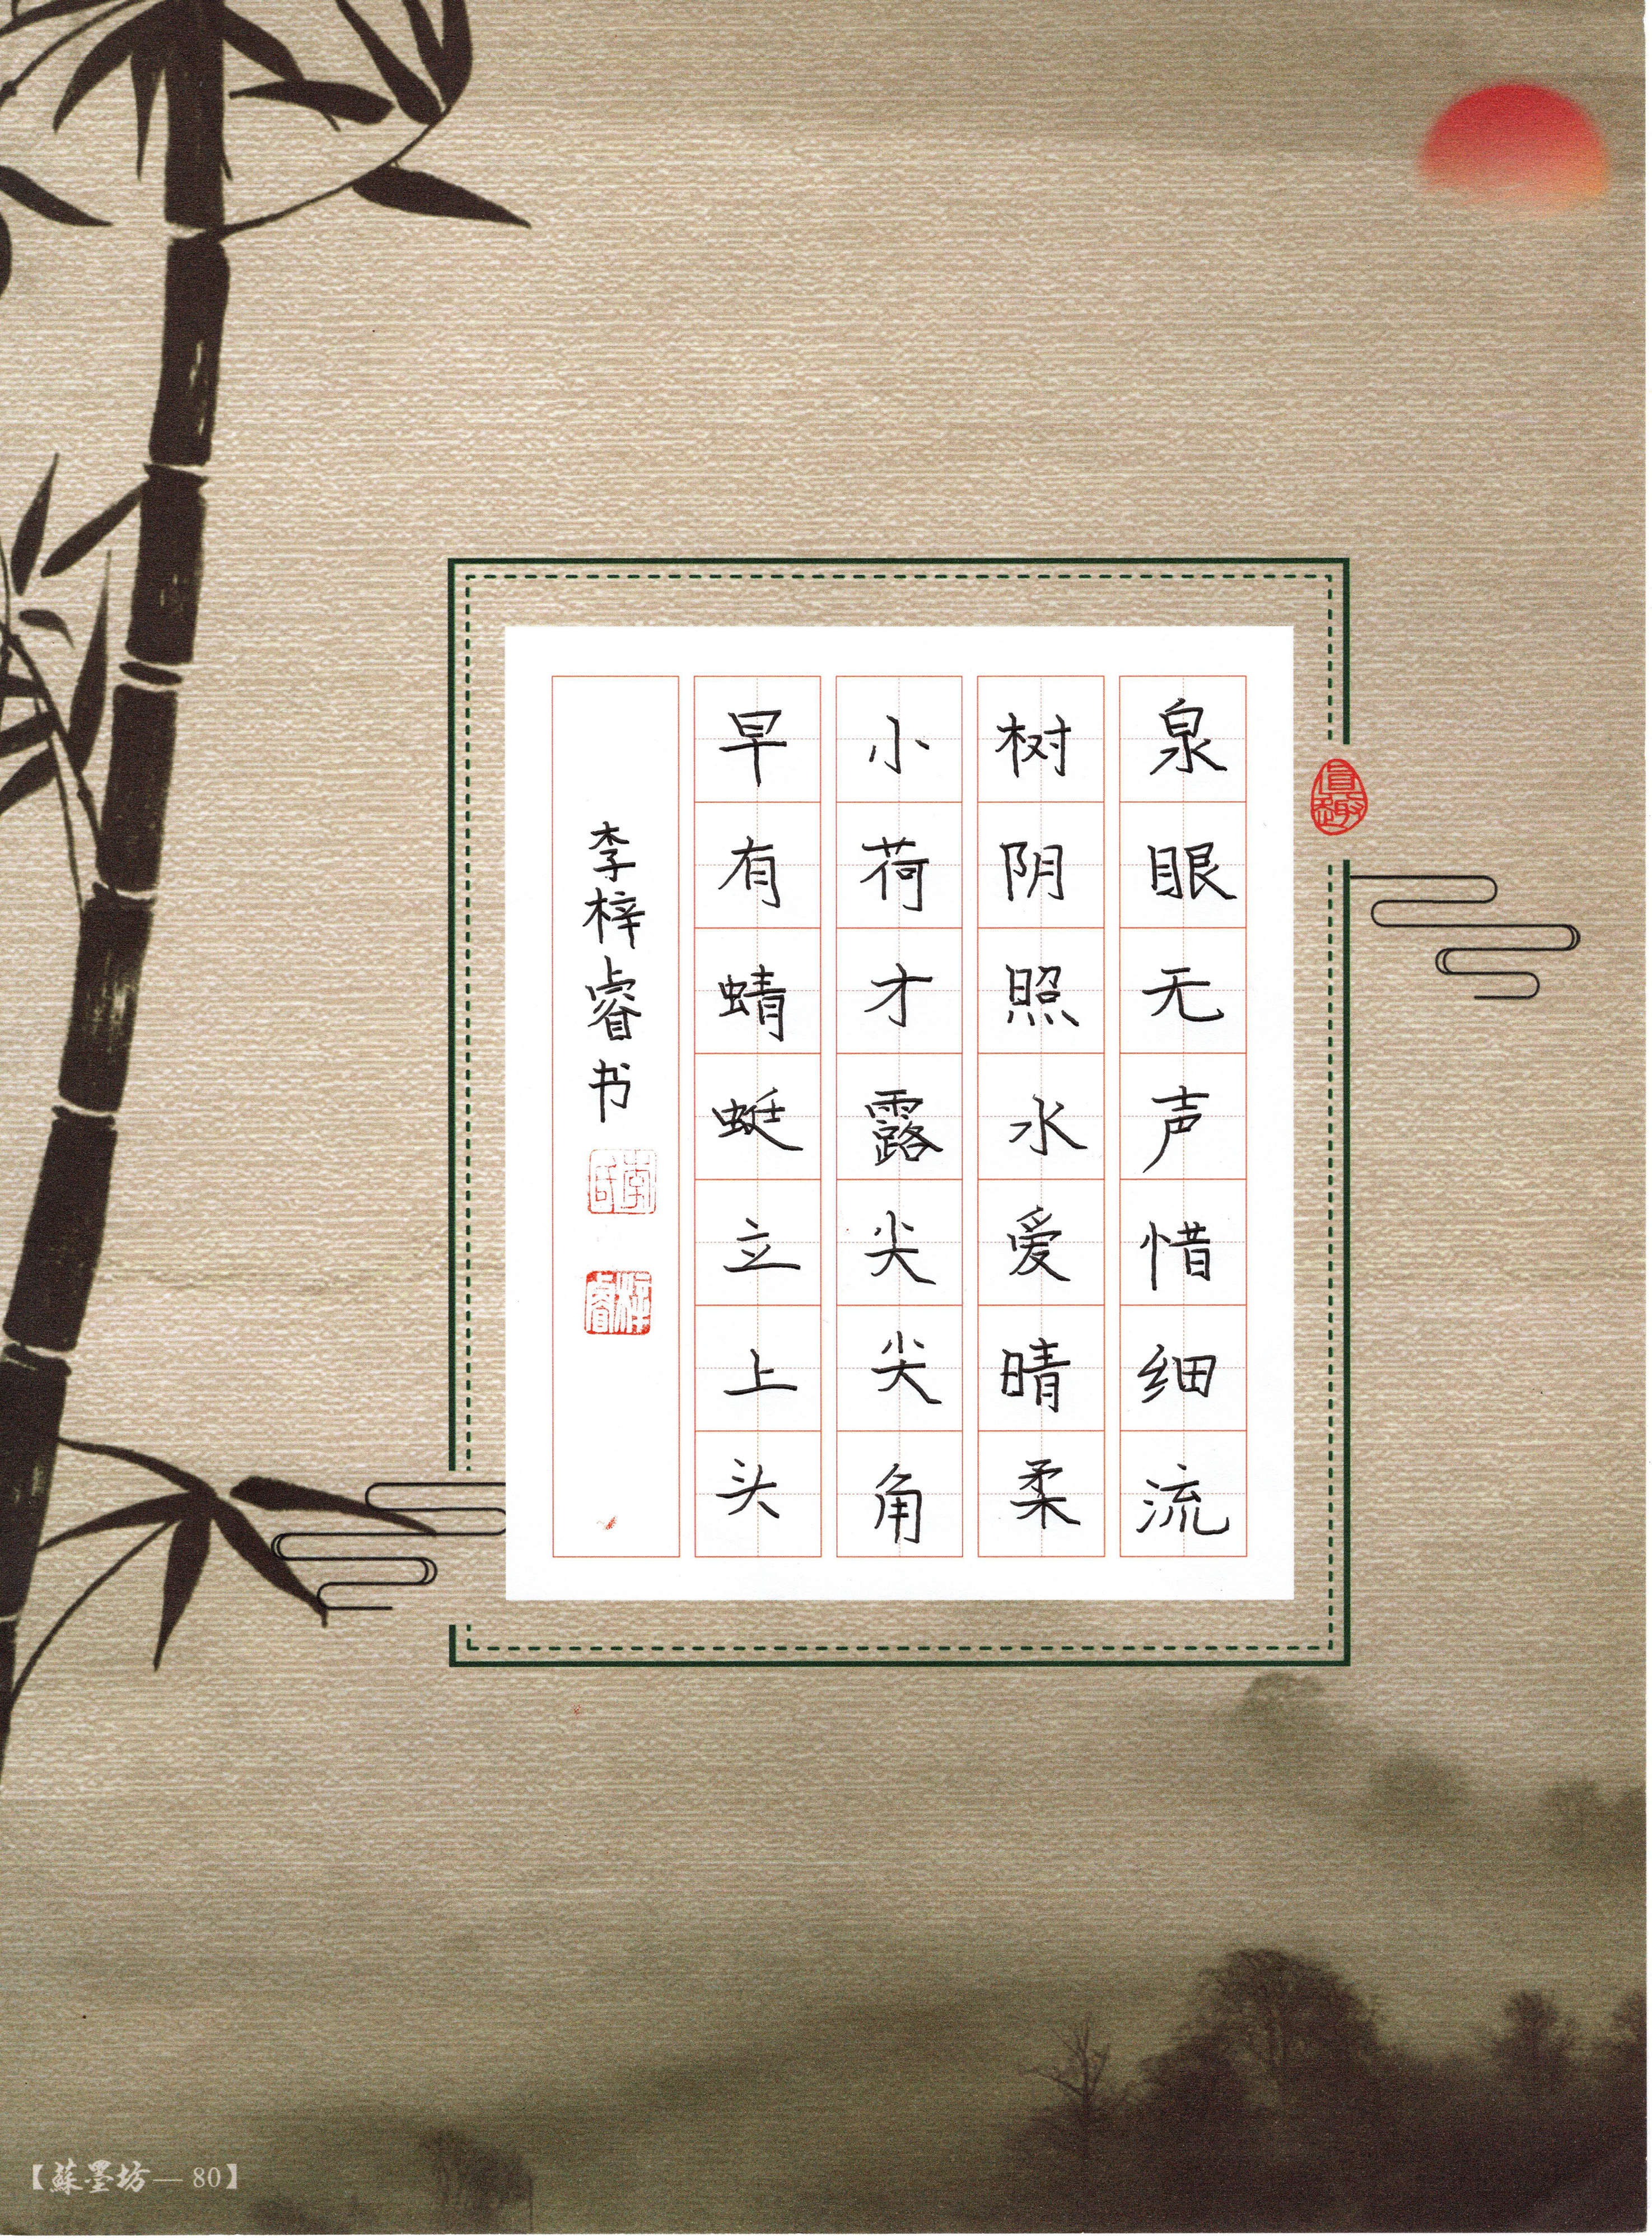 泉眼无声惜细流
树阴照水爱晴柔
小荷才露尖尖角
早有蜻蜓立上头
李梓睿书
李氏
梓睿
【蘇墨坊—80】